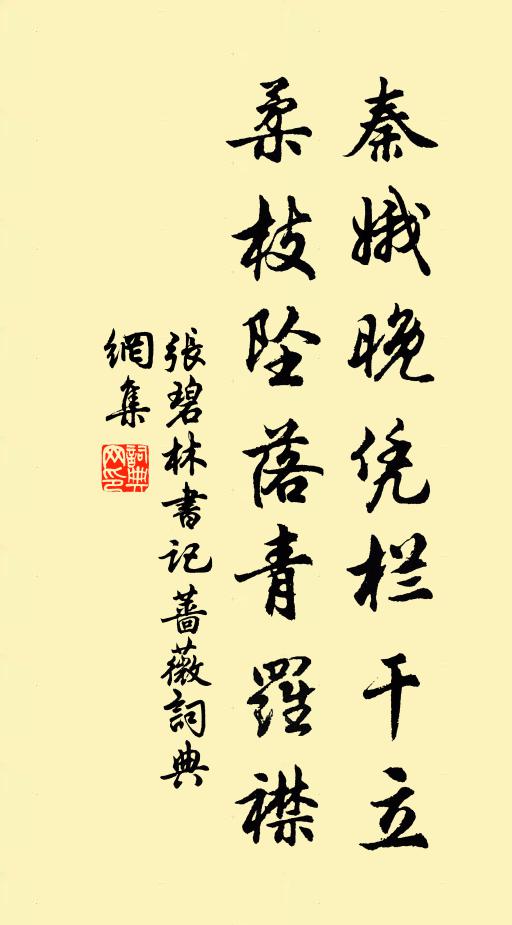 秦娥晚凭栏干立
柔枝坠落青羅襟
張碧林書記薔薇詞典
網集
詞典
网印